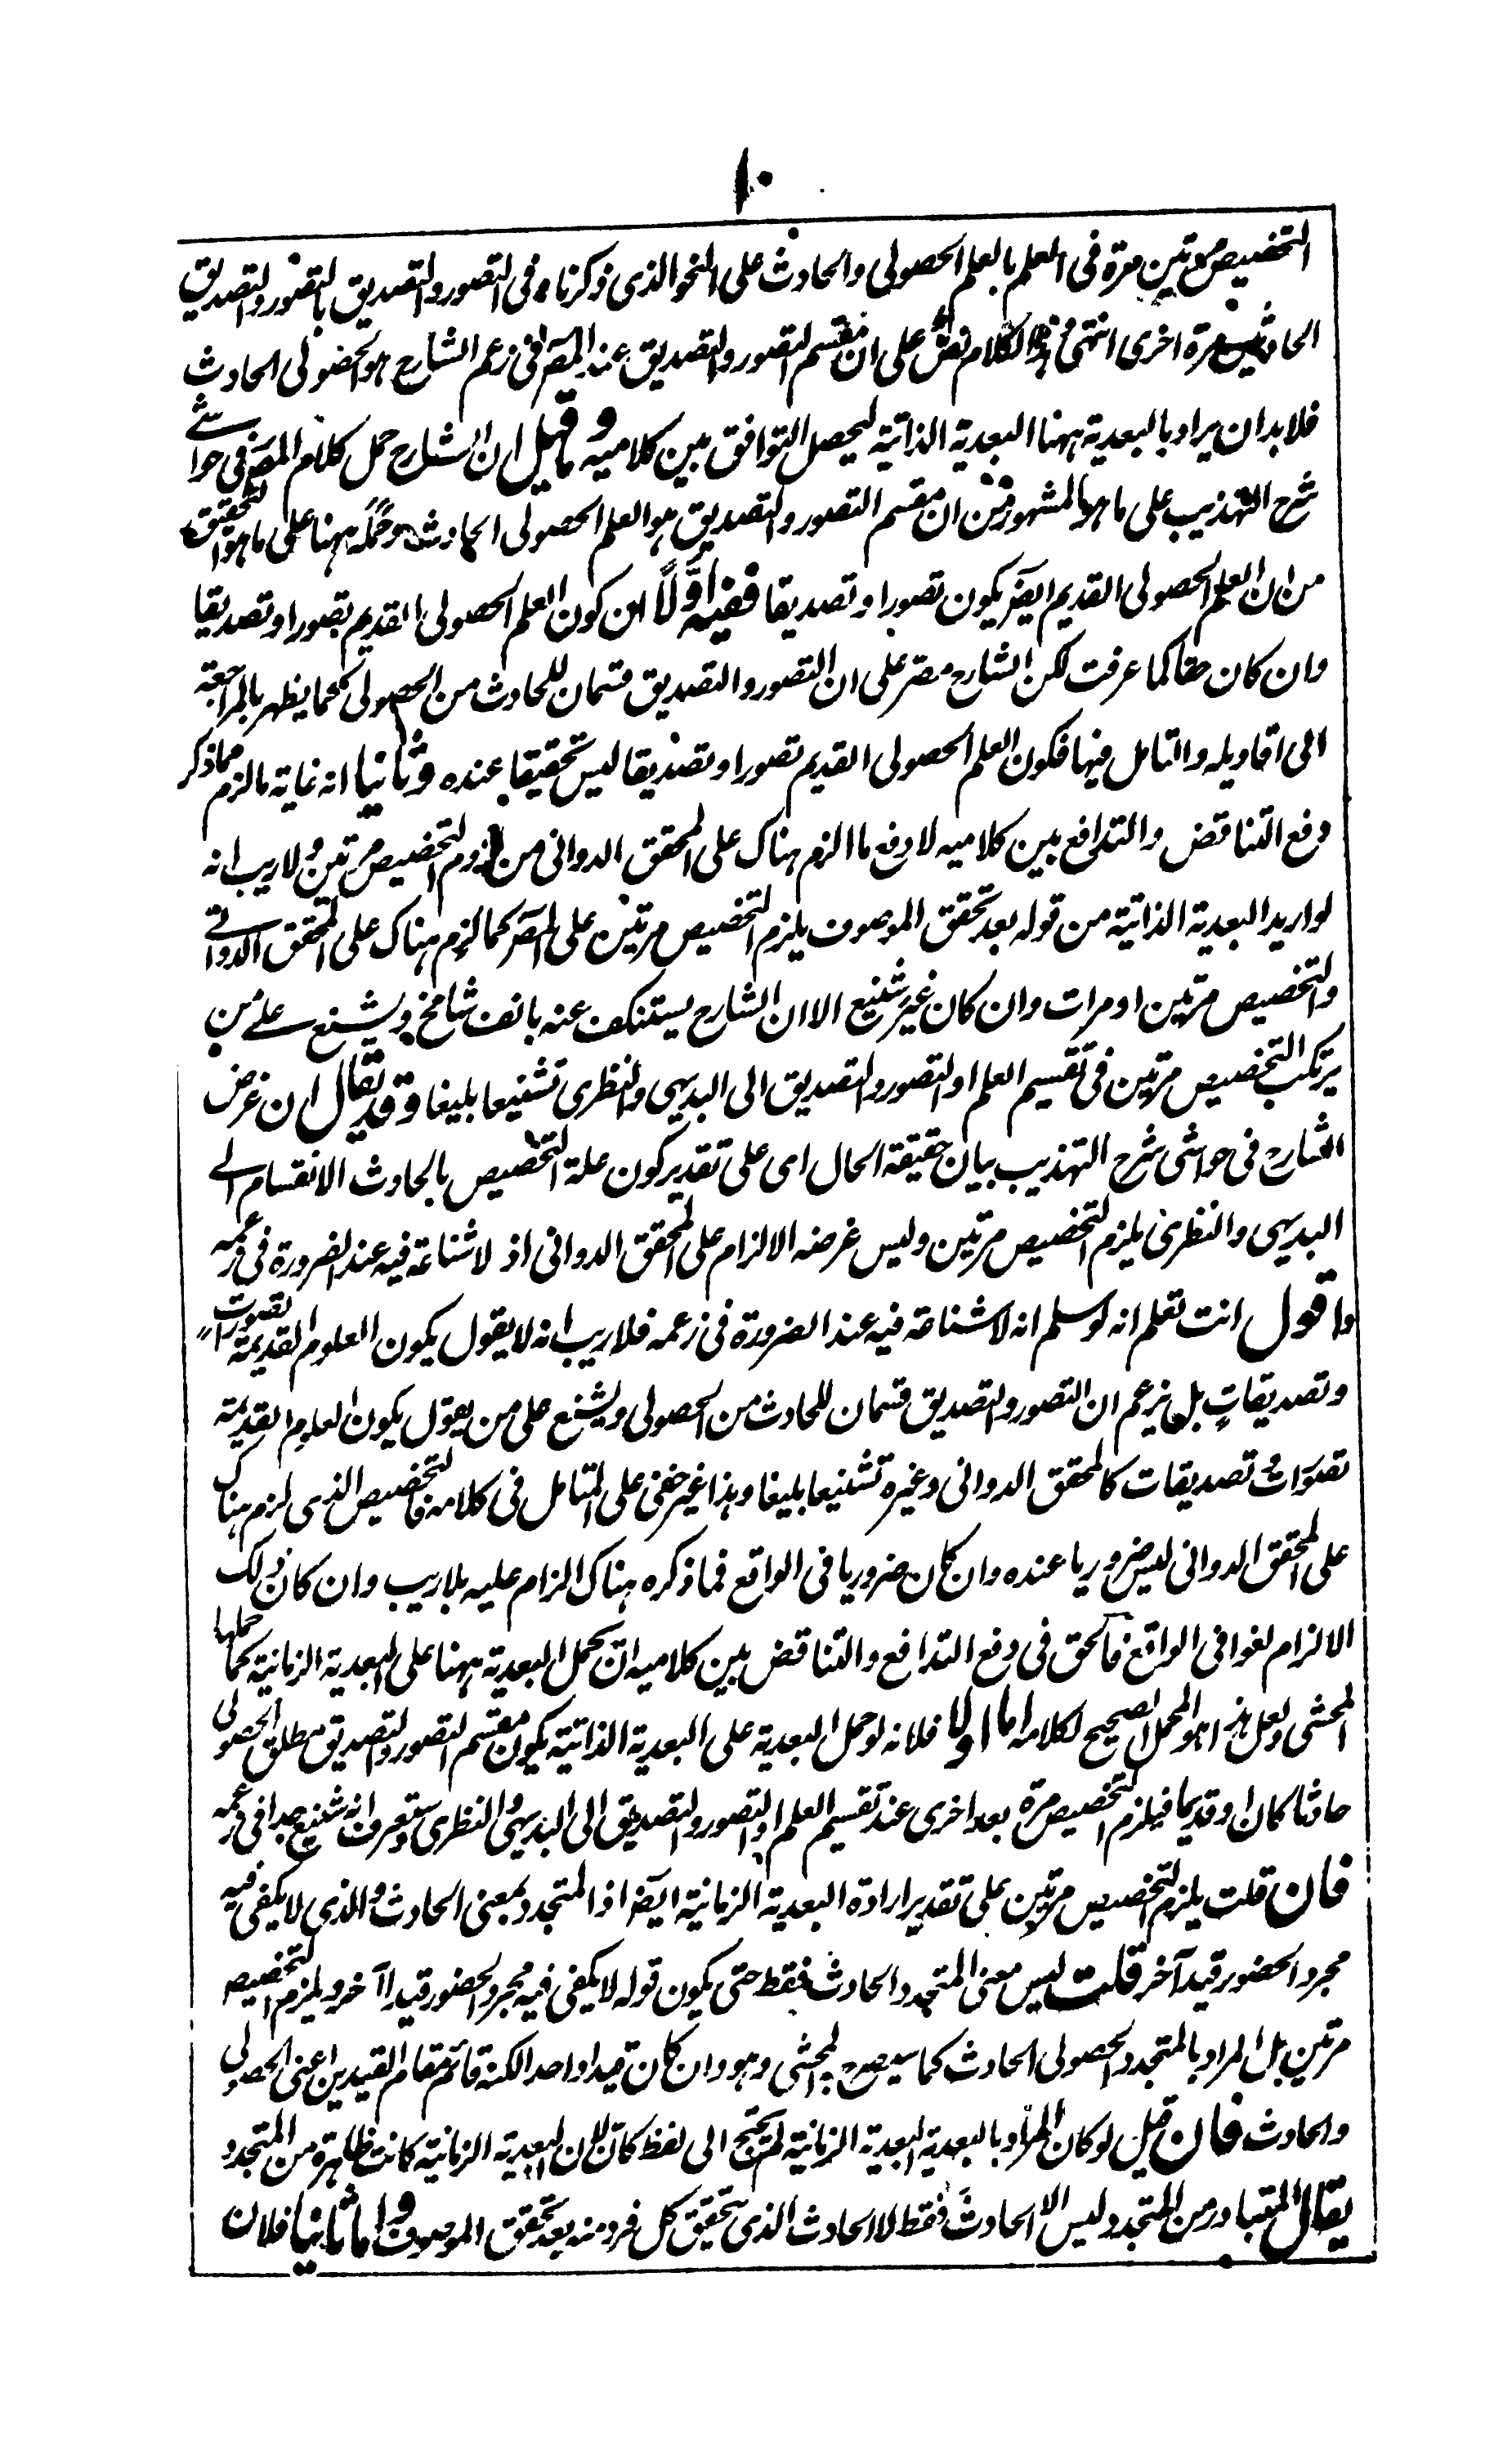 ١٠
التخصيص مرتين مرة فى العلم بالعلم الحصولى والحادث على النحو الذى ذكرناه فى التصور والتصديق بالتصور والتصديق
الحادثين مرة اخرى انتهى فهذا الكلام نص على ان مقسم التصور والتصديق عند المصر فى زعم الشارح هو الحصولى الحادث
فلا بد ان يراد بالبعدية ههنا البعدية الذاتية ليحصل التوافق بين كلاميه وما قيل ان الشارح حمل كلام المصر فى حواشے
شرح التهذيب على ما هو المشهور من ان مقسم التصور والتصديق هو العلم الحصولى الحادث وحمله ههنا على ما هو التحقيق
من ان العلم الحصولى القديم ايضر يكون تصورا وتصديقا ففيه اوّلًا ان كون العلم الحصولى القديم تصورا وتصديقا
وان كان حقا كما عرفت لكن الشارح مصر على ان التصور والتصديق قسمان للحادث من الحصولى كما يظهر بالمراجعة
الى اقاويله والتامل فيها فكون العلم الحصولى القديم تصورا وتصديقا ليس تحقيقا عنده وثانيا انه غاية ما لزم مما ذكر
دفع التناقض والتدافع بين كلاميه لا دفع ما الزم هناك على المحقق الدوانى من لزوم التخصيص مرتين ولا ريب انه
لو اريد البعدية الذاتية من قوله بعد تحقق الموصوف يلزم التخصيص مرتين على المصر كما لزم هناك على المحقق الدوانے
والتخصيص مرتين او مرات وان كان غير شنيع الا ان الشارح يستنكف عنه بانف شامخ ويشنع على من
يرتكب التخصيص مرتين فى تقسيم العلم او التصور والتصديق الى البديهى والنظرى تشنيعا بليغا وقد يقال ان غرض
الشارح فى حواشى شرح التهذيب بيان حقيقة الحال اى على تقدير كون علة التخصيص بالحادث الانقسام الے
البديهى والنظرى يلزم التخصيص مرتين وليس غرضه الالزام على المحقق الدوانى اذ لا شناعة فيه عند الضرورة فى زعمه
واقول انت تعلم انه لو سلم انه لا شناعة فيه عند الضرورة فى زعمه فلا ريب انه لا يقول بكون العلوم القديمة تصورات
وتصديقاتٍ بل يزعم ان التصور والتصديق قسمان للحادث من الحصولى ويشنع على من يقول بكون العلوم القديمة
تصورات وتصديقات كالمحقق الدوانى وغيره تشنيعا بليغا وهذا غير خفى على المتامل فى كلامه فالتخصيص الذى لزم هناك
على المحقق الدوانى ليس ضروريا عنده وان كان ضروريا فى الواقع فما ذكره هناك الزام عليه بلا ريب وان كان ذلك
الالزام لغوا فى الواقع فالحق فى دفع التدافع والتناقض بين كلاميه ان تحمل البعدية ههنا على البعدية الزمانية كما حملها
المحشى ولعل هذا هو المحمل الصحيح لكلامه اما اولا فلانه لو حمل البعدية على البعدية الذاتية يكون مقسم التصور والتصديق مطلق الحصولى
حادثا كان او قديما فيلزم التخصيص مرة بعد اخرى عند تقسيم العلم او التصور والتصديق الى البديهى والنظرى وستعرف انه شنيع جدا فى زعمه
فان قلت يلزم التخصيص مرتين على تقدير ارادة البعدية الزمانية ايضا اذ المتجدد بمعنى الحادث والذى لا يكفى فيه
مجرد الحضور قيد آخر قلت ليس معنى المتجدد الحادث فقط حتى يكون قوله لا يكفى فيه مجرد الحضور قيدا آخر ويلزم التخصيص
مرتين بل المراد بالمتجدد الحصولى الحادث كما سيصرح به المحشى وهو وان كان قيدا واحدا لكنه قائم مقام القيدين اعنى الحصولى
والحادث فان قيل لو كان المراد بالبعدية البعدية الزمانية لم يحتج الى لفظ كان لان البعدية الزمانية كانت ظاهرة من المتجدد
يقال المتبادر من المتجدد ليس الا الحادث فقط لا الحادث الذى تحقيق كل فرد منه بعد تحقق الموصوف واما ثانيا فلان